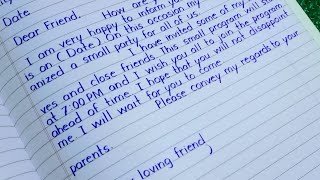 Date
Dear Friend... How are
I am very happy to inform you
is on (Date) On this occasion my
anized a small party for all of us
I have invited some of my
ves and close friends. This small program will start
at 7:00 PM and I wish you all to join the program
ahead of time. I hope that you will not disappoint
me. I will wait for you to come
Please convey my regards to your
parents...
loving friend,